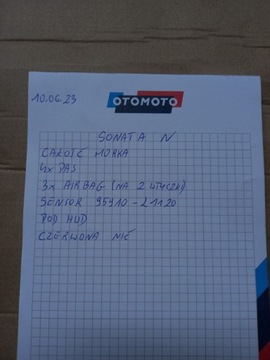 10.06.23
OTOMOTO
SONATA N
CAŁOŚĆ MOKKA
4x PAS
3x AIRBAG (NA 2 WTYCZKI)
SENSOR 95910-L1120
POD HUD
CZERWONA NIĆ